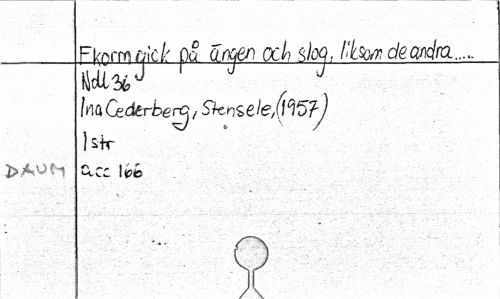 Ekorrn gick på ängen och slog, liksom de andra.....
Ndl 36
Ina Cederberg, Stensele, (1957)
1 str
DAUM acc 166